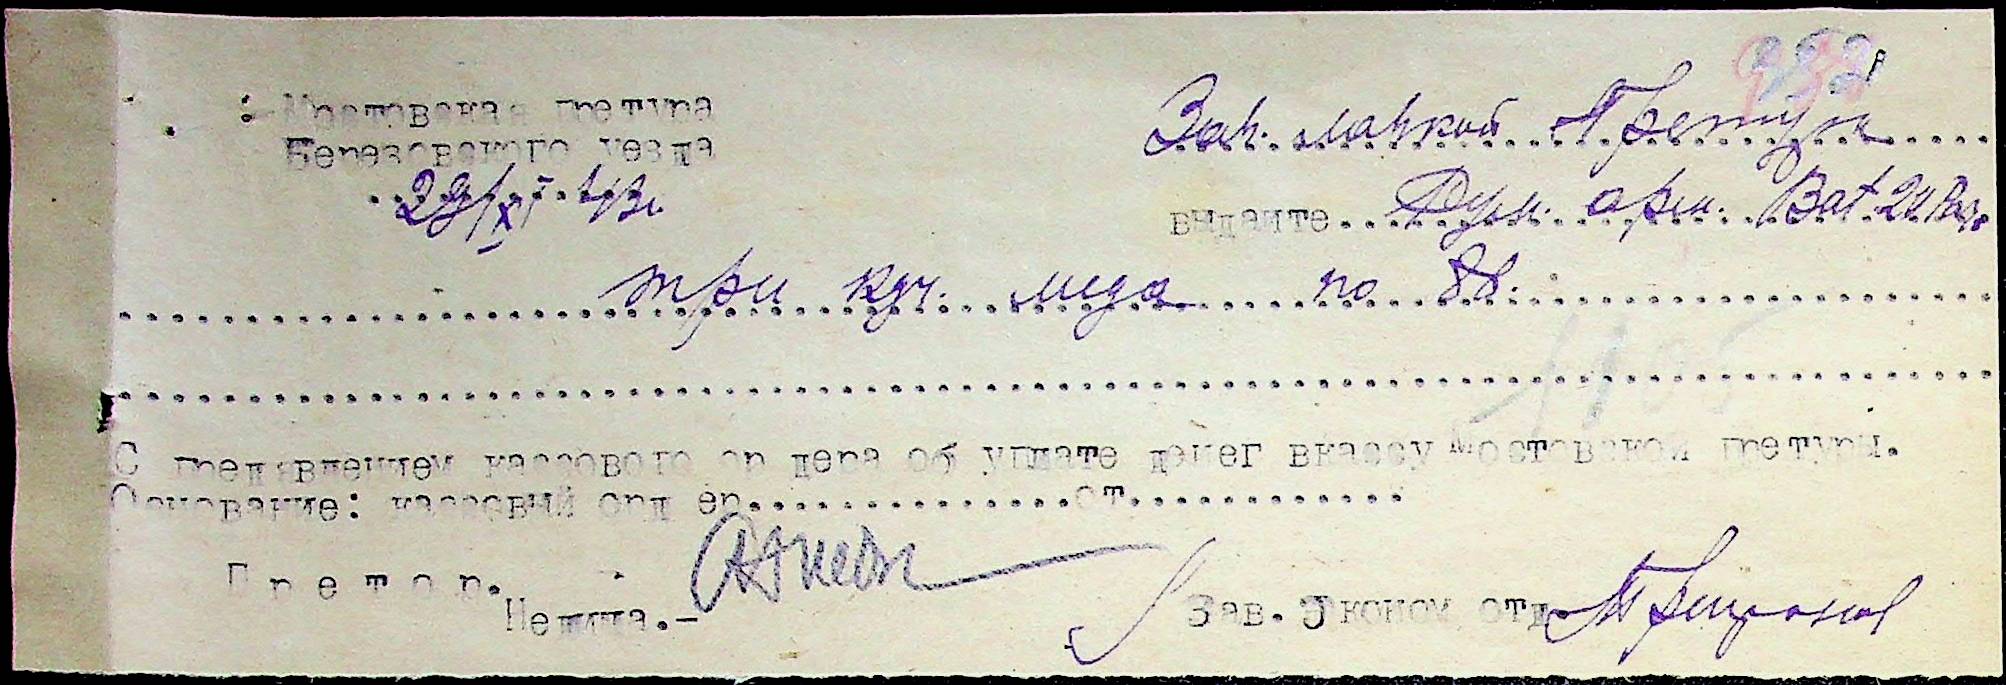 Мостовская претура
Березовского уезда
29/XI 43г.
Зав. лавкой Претуры
выдайте Рум. арм. Bat. 24
три кгч. меда по 8д.
С предявлением кассового ордера об уплате денег вкассу Мостовской претуры.
Основание: кассовый ордер от
Претор.
Зав. Эконом отд.